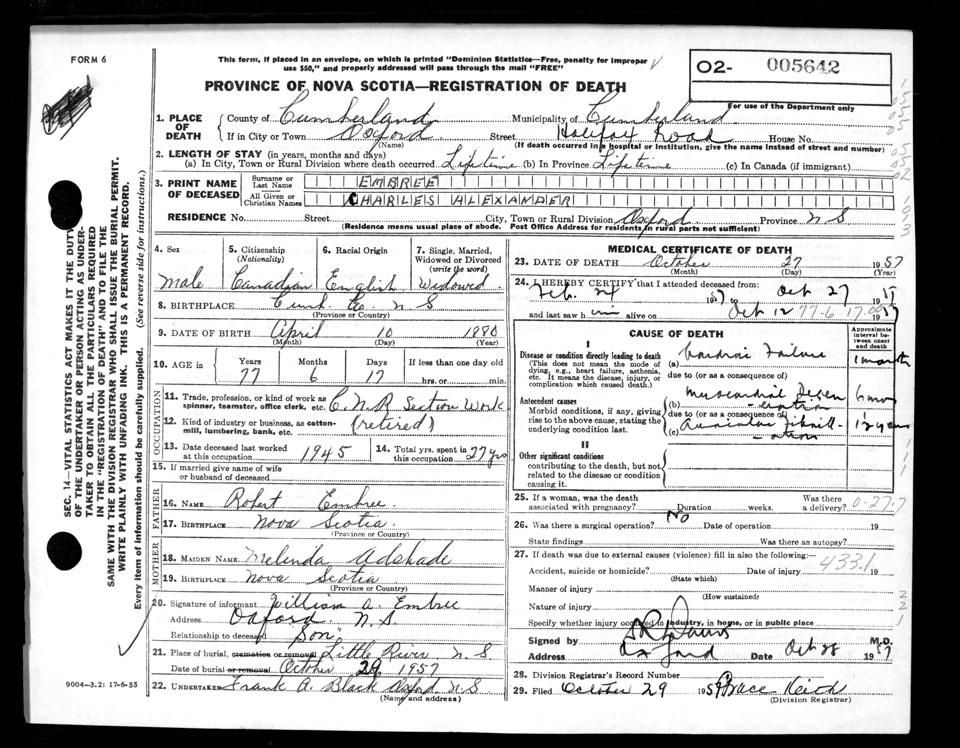 FORM 6
This form, if placed in an envelope, on which is printed "Dominion Statistics—Free, penalty for improper
use $50," and properly addressed will pass through the mail "FREE"
PROVINCE OF NOVA SCOTIA—REGISTRATION OF DEATH
O2- 005642
For use of the Department only
1. PLACE OF DEATH
County of Cumberland Municipality of Cumberland
If in City or Town Oxford Street Halifax Road House No.
(Name) (If death occurred in a hospital or institution, give the name instead of street and number)
2. LENGTH OF STAY (in years, months and days)
(a) In City, Town or Rural Division where death occurred Lifetime (b) In Province Lifetime (c) In Canada (if immigrant)
3. PRINT NAME OF DECEASED
Surname or Last Name EMBREE
All Given or Christian Names CHARLES ALEXANDER
RESIDENCE No. Street City, Town or Rural Division Oxford Province N S
(Residence means usual place of abode. Post Office Address for residents in rural parts not sufficient)
4. Sex
Male
5. Citizenship
(Nationality)
Canadian
6. Racial Origin
English
7. Single, Married,
Widowed or Divorced
(write the word)
Widowed
8. BIRTHPLACE Cumb Co. N S
(Province or Country)
9. DATE OF BIRTH April 10 1880
(Month) (Day) (Year)
10. AGE in Years Months Days If less than one day old
77 6 17 hrs. or min.
OCCUPATION
11. Trade, profession, or kind of work as
spinner, teamster, office clerk, etc. C.N.R Section Work
12. Kind of industry or business, as cotton-
mill, lumbering, bank, etc. (retired)
13. Date deceased last worked
at this occupation 1945
14. Total yrs. spent in
this occupation 27 yrs
15. If married give name of wife
or husband of deceased
FATHER
16. NAME Robert Embree
17. BIRTHPLACE Nova Scotia
(Province or Country)
MOTHER
18. MAIDEN NAME Melinda Adshade
19. BIRTHPLACE Nova Scotia
(Province or Country)
20. Signature of informant William A. Embree
Address Oxford N.S.
Relationship to deceased Son
21. Place of burial, cremation or removal Little River N S
Date of burial or removal October 29, 1957
22. UNDERTAKER Frank A. Black Oxford N S
(Name and address)
MEDICAL CERTIFICATE OF DEATH
23. DATE OF DEATH October 27 1957
(Month) (Day) (Year)
24. I HEREBY CERTIFY that I attended deceased from:
Feb. 24 1957 to Oct 27 1957
and last saw him alive on Oct 12 77-6 17.00 1957
CAUSE OF DEATH
Approximate
interval be-
tween onset
and death
I
Disease or condition directly leading to death
(This does not mean the mode of
dying, e.g., heart failure, asthenia,
etc. It means the disease, injury, or
complication which caused death.)
(a) Cardiac Failure 1 month
due to (or as a consequence of)
Antecedent causes
Morbid conditions, if any, giving
rise to the above cause, stating the
underlying condition last.
(b) Myocardial Degen
eration 6 mos
due to (or as a consequence of)
(c) Auricular Fibrill-
ation 12 years
II
Other significant conditions
contributing to the death, but not
related to the disease or condition
causing it.
25. If a woman, was the death
associated with pregnancy? Duration weeks. Was there
a delivery? 0-27.7
26. Was there a surgical operation? No Date of operation 19
State findings Was there an autopsy?
27. If death was due to external causes (violence) fill in also the following:—
Accident, suicide or homicide? Date of injury 433.1 19
(State which)
Manner of injury
(How sustained)
Nature of injury
Specify whether injury occurred in industry, in home, or in public place
Signed by M.D.
Address Oxford Date Oct 28 1957
28. Division Registrar's Record Number
29. Filed October 29 1957 Grace Keith
(Division Registrar)
9004—3.2: 17-6-55
SEC. 14—VITAL STATISTICS ACT MAKES IT THE DUTY
OF THE UNDERTAKER OR PERSON ACTING AS UNDER-
TAKER TO OBTAIN ALL THE PARTICULARS REQUIRED
IN THE "REGISTRATION OF DEATH" AND TO FILE THE
SAME WITH THE DIVISION REGISTRAR WHO SHALL ISSUE THE BURIAL PERMIT.
WRITE PLAINLY WITH UNFADING INK. THIS IS A PERMANENT RECORD.
Every item of information should be carefully supplied. (See reverse side for instructions.)